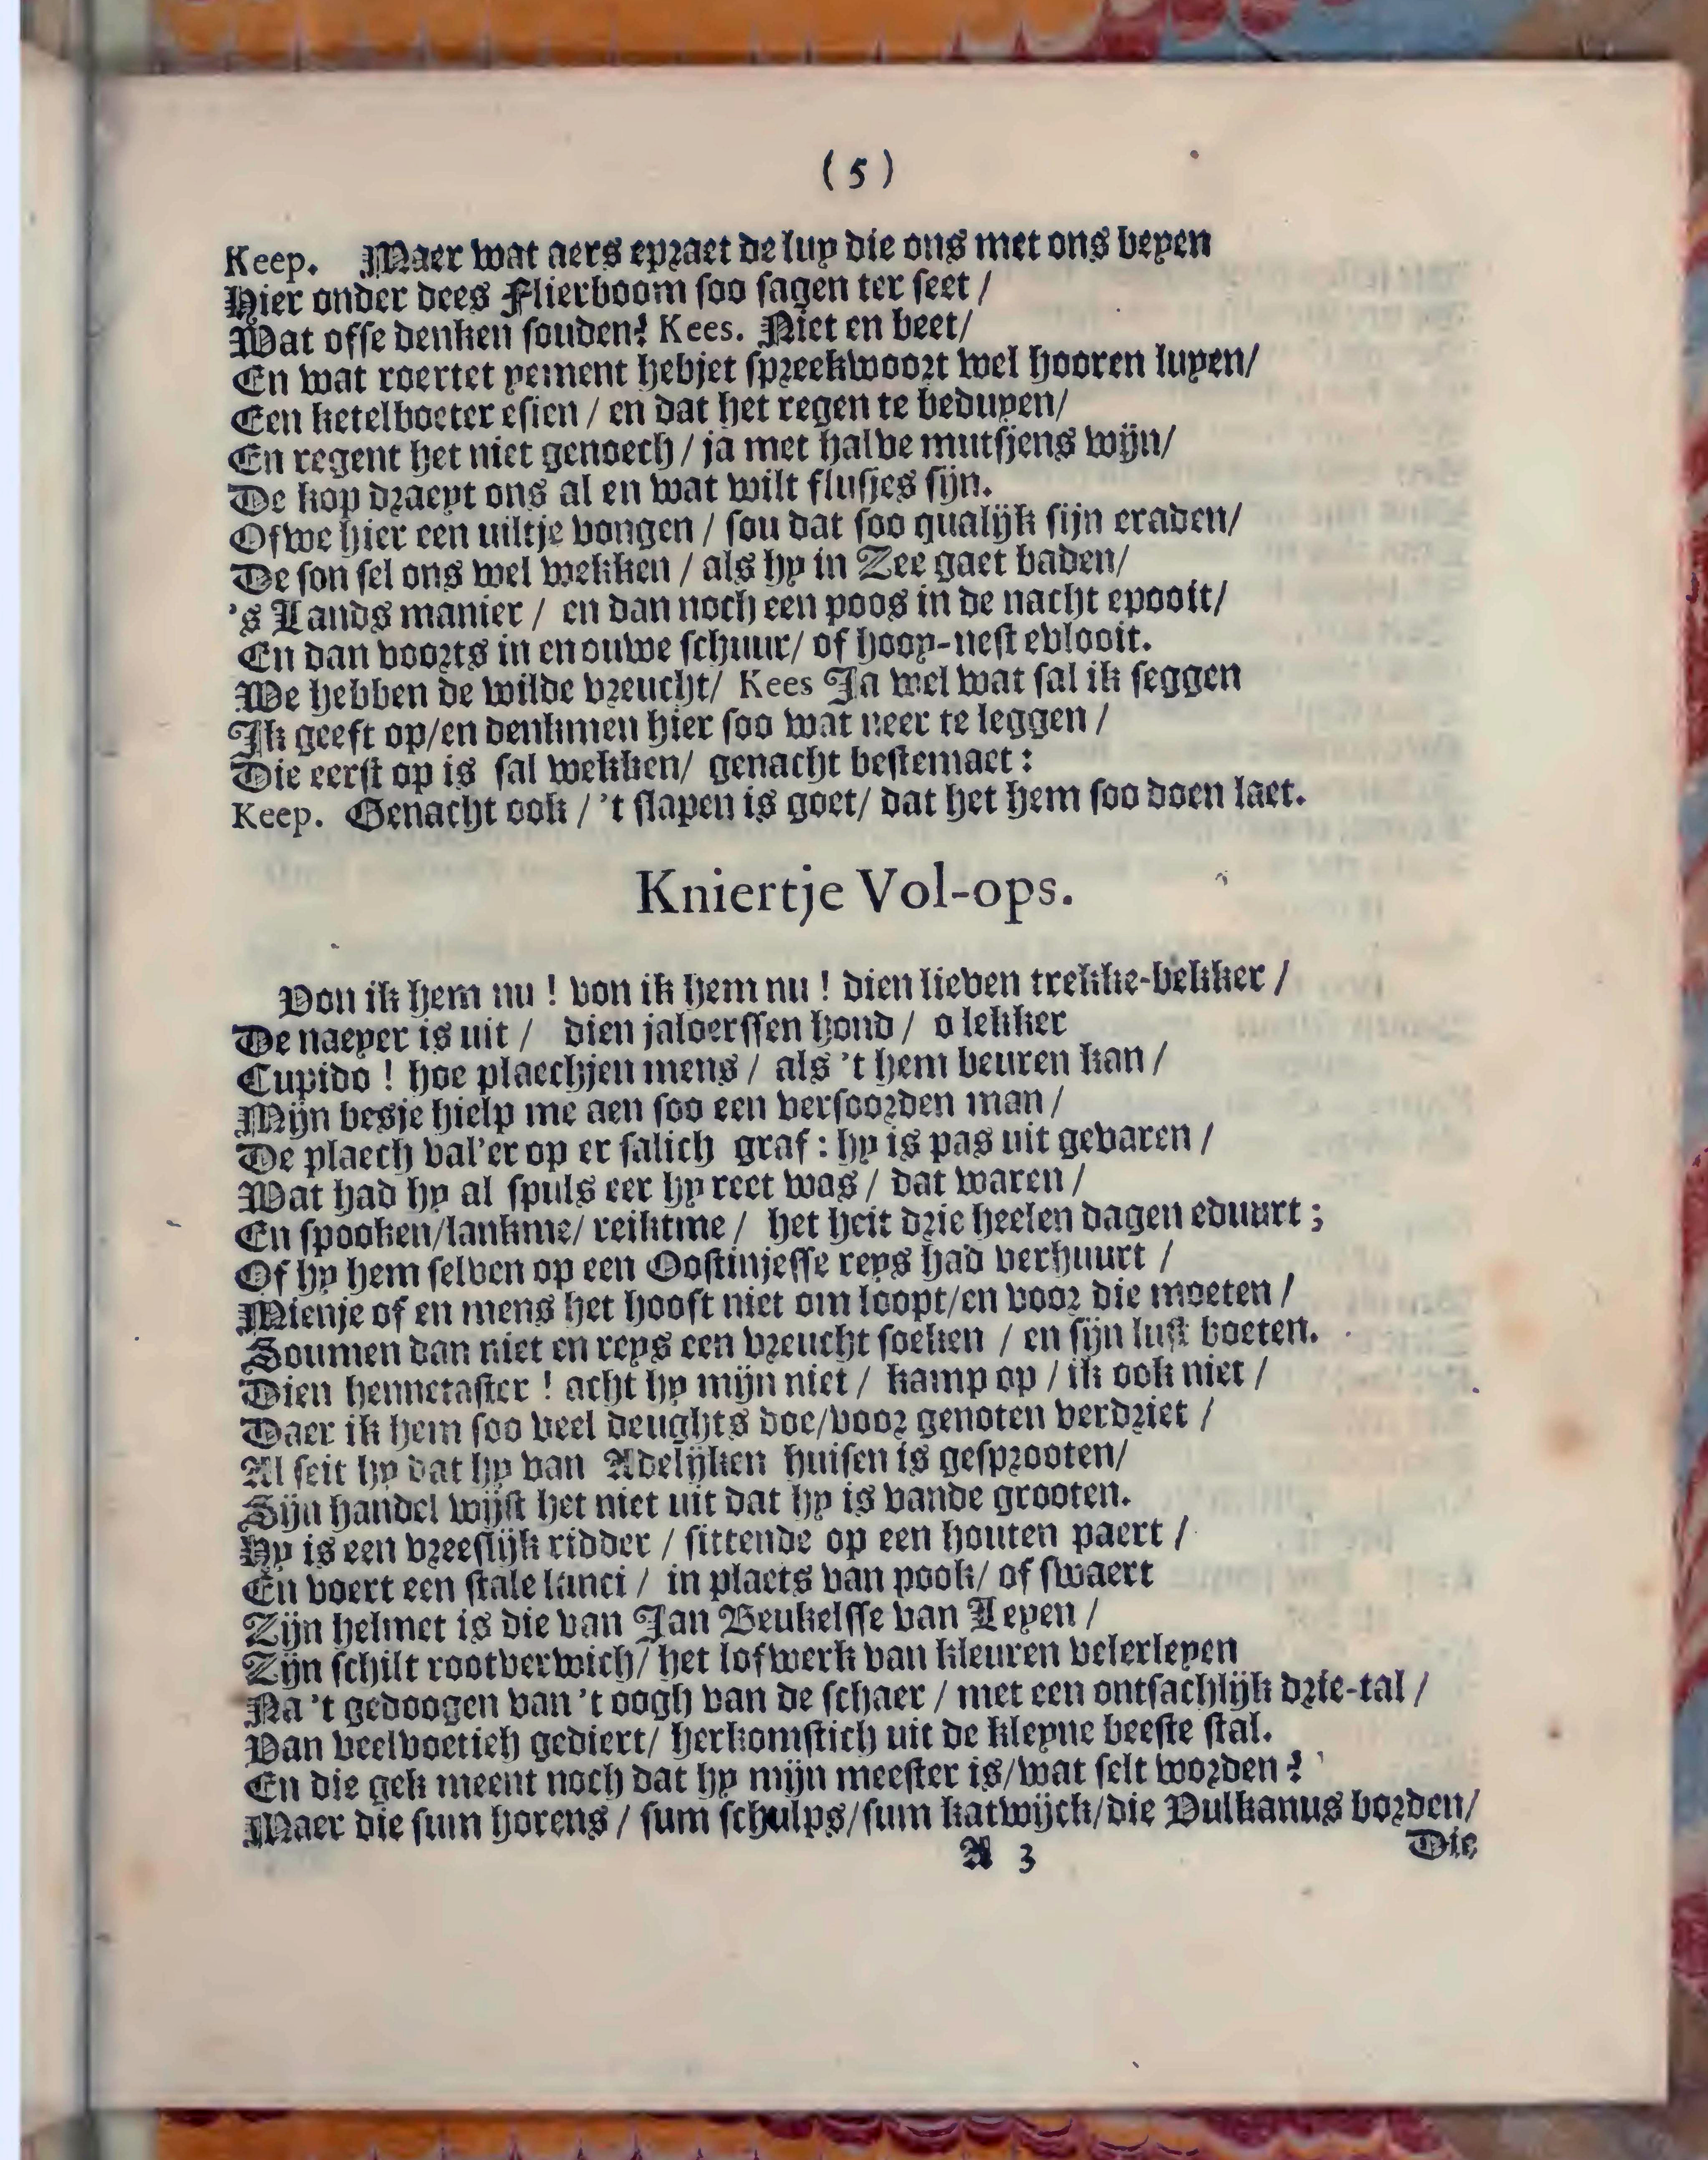 (5)
Keep. Maer wat aers epraet de luy die ons met ons beyen
Hier onder dees Flierboom soo sagen ter seet /
Wat offe denken souden? Kees. Niet en beet/
En wat roertet yement hebjet spreekwoort wel hooren luyen/
Een ketelboeter esien / en dat het regen te beduyen/
En regent het niet genoech / ja met halve mutsjens wijn/
De kop draeyt ons al en wat wilt flusjes sijn.
Ofwe hier een uiltje vongen / sou dat soo qualijk sijn eraden/
De son sel ons wel wekken / als hy in Zee gaet baden/
's Lands manier / en dan noch een poos in de nacht epooit/
En dan voorts in en ouwe schuur/ of hooy-nest evlooit.
We hebben de wilde vreucht/ Kees Ja wel wat sal ik seggen
Ik geeft op/en denkmen hier soo wat neer te leggen /
Die eerst op is sal wekken/ genacht bestemaet:
Keep. Genacht ook / 't slapen is goet/ dat het hem soo doen laet.
Kniertje Vol-ops.
Von ik hem nu ! von ik hem nu ! dien lieven trekke-bekker /
De naeyer is uit / dien jaloerssen hond / o lekker
Cupido ! hoe plaechjen mens / als 't hem beuren kan /
Mijn besje hielp me aen soo een versoorden man /
De plaech val'er op er salich graf: hy is pas uit gevaren /
Wat had hy al spuls eer hy reet was / dat waren /
En spooken/lankme/ reiktme / het heit drie heelen dagen eduurt;
Of hy hem selven op een Oostinjesse reys had verhuurt /
Mienje of en mens het hooft niet om loopt/en voor die moeten /
Soumen dan niet en reys een vreucht soeken / en sijn lust boeten.
Dien hennetaster ! acht hy mijn niet / kamp op / ik ook niet /
Daer ik hem soo veel deughts doe/voor genoten verdriet /
Al seit hy dat hy van Adelijken huisen is gesprooten/
Sijn handel wijst het niet uit dat hy is vande grooten.
Hy is een vreeslijk ridder / sittende op een houten paert /
En voert een stale lanci / in plaets van pook/ of swaert
Zijn helmet is die van Jan Beukelsse van Leyen /
Zijn schilt rootverwich/ het lofwerk van kleuren velerleyen
Na 't gedoogen van 't oogh van de schaer / met een ontsachlijk drie-tal /
Van veelvoetich gediert/ herkomstich uit de kleyne beeste stal.
En die gek meent noch dat hy mijn meester is/wat selt worden?
Maer die sum horens / sum schulps/sum katwijck/die Vulkanus borden/
A 3
Die